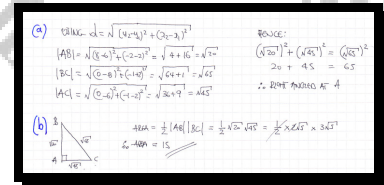 (a) USING d = √((y₂-y₁)² + (x₂-x₁)²)
|AB| = √((8-6)²+(-2-2)²) = √(4+16) = √20
|BC| = √((0-8)²+(-1+2)²) = √(64+1) = √65
|AC| = √((0-6)²+(-1-2)²) = √(36+9) = √45
HENCE:
(√20)² + (√45)² = (√65)²
20 + 45 = 65
∴ RIGHT ANGLED AT A
(b) B
√20
√65
A
√45
C
AREA = ½|AB||BC| = ½ √20 √45 = ½ × 2√5 × 3√5
∴ AREA = 15